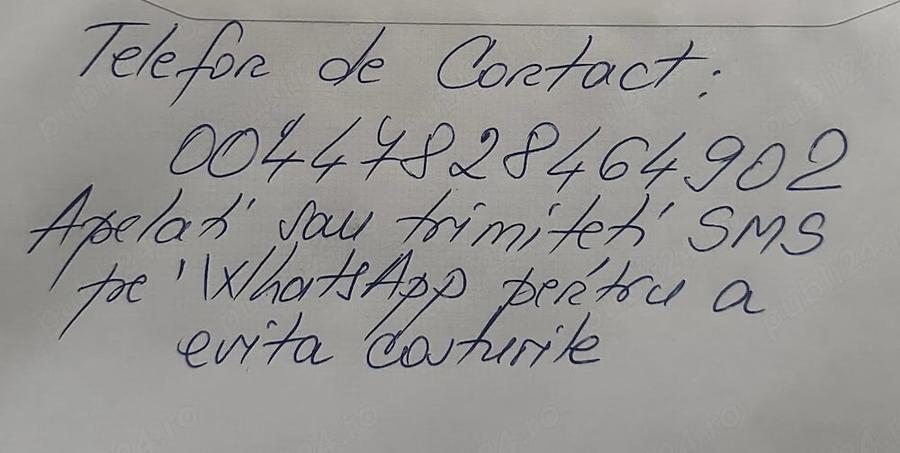 Telefon de Contact:
00447828464902
Apelati sau trimiteti SMS
pe WhatsApp pentru a
evita costurile